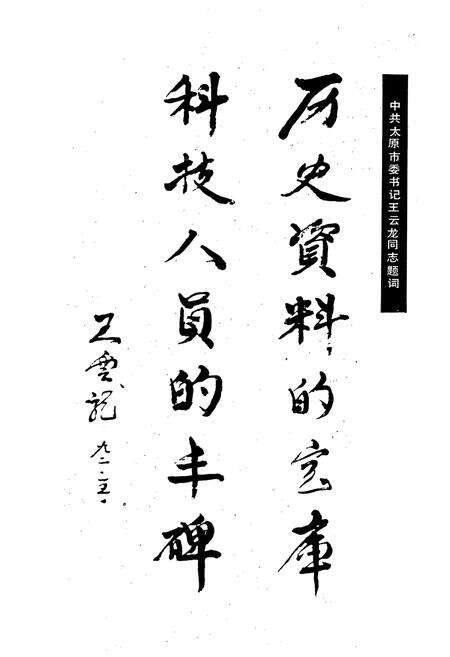 中共太原市委书记王云龙同志题词
历史資料的宝庫
科技人员的丰碑
王雲龍